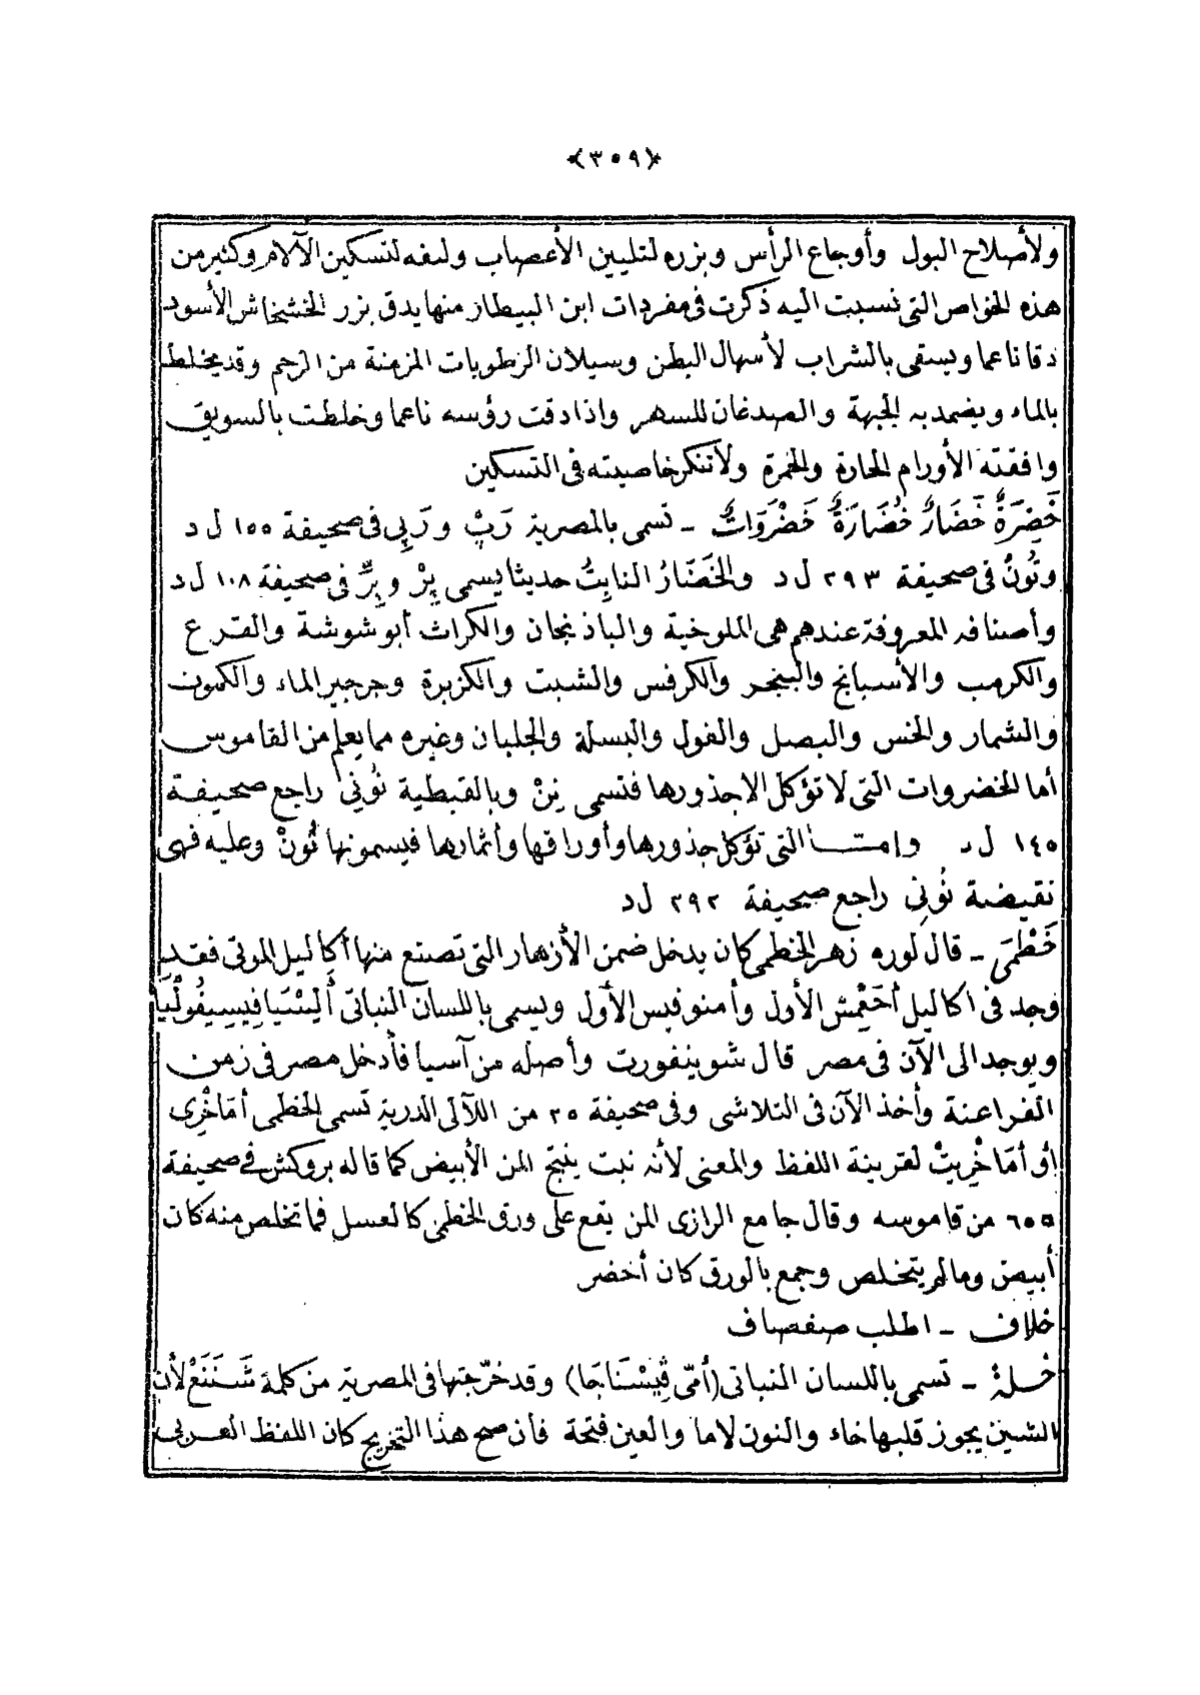 ﴿٣٥٩﴾
ولأصلاح البول وأوجاع الرأس وبزره لتليين الأعصاب ولفه لتسكين الآلام وكثير من
هذه الخواص التى نسبت اليه ذكرت فى مفردات ابن البيطار منها يدق بزر الخشخاش الأسود
دقا ناعما ويسقى بالشراب لأسهال البطن وسيلان الرطوبات المزمنة من الرحم وقد يخلط
بالماء ويضمد به الجبهة والصدغان للسهر واذا دقت رؤسه ناعما وخلطت بالسويق
وافقته الأورام الحارة والخمرة ولا تنكر خاصيته فى التسكين
خَضِرَةٌ خَضَارٌ خُضَارَةٌ خَضْرَوَاتٌ - تسمى بالمصرية رَبْ ورَبِى فى صحيفة ١٥٥ ل د
وتُونْ فى صحيفة ٢٩٣ ل د والخَضَارُ النابِتُ حديثا يسمى بِرْ وبِرِّ فى صحيفة ١٠٨ ل د
وأصنافه المعروفة عندهم هى الملوخية والباذنجان والكراث أبو شوشة والقرع
والكرمب والأسبانخ والبنجر والكرفس والشبت والكزبرة وجرجير الماء والكمون
والشمار والخس والبصل والفول والبسلة والجلبان وغيره مما يعلم من القاموس
أما الخضروات التى لا تؤكل الا جذورها فتسمى نِنْ وبالقبطية نُونِى راجع صحيفة
١٤٥ ل د وامتا التى تؤكل جذورها وأوراقها وأثمارها فيسمونها تُونْ وعليه فهى
نقيضة نُونِى راجع صحيفة ٢٩٢ ل د
خَطْمَى - قال لوره زهر الخطمى كان يدخل ضمن الأزهار التى تصنع منها أكاليل الموتى فقد
وجد فى اكاليل أحَمِْس الأول وأمنوفيس الأول ويسمى باللسان النباتى أَلِسْيَا فِيسِيفُولْيَا
ويوجد الى الآن فى مصر قال شوينفورت وأصله من آسيا فأدخل مصر فى زمن
الفراعنة وأخذ الآن فى التلاشى وفى صحيفة ٢٥ من اللآلى الدرية تسمى الخطمى أمَاخْرِى
أو أمَاخْرِيتْ لقرينة اللفظ والمعنى لأنه نبت ينتج المن الأبيض كما قاله بروكش فى صحيفة
٦٥٥ من قاموسه وقال جامع الرازى المن يقع على ورق الخطمى كالعسل فما تخلص منه كان
أبيض وما لم يتخلص وجمع بالورق كان أخضر
خلاف - اطلب صفصاف
خلة - تسمى باللسان النباتى (أمّى ڤِيسْنَاجَا) وقد خرّجتها فى المصرية من كلمة شَنَنَعْ لأن
الشين يجوز قلبها خاء والنون لاما والعين فتحة فأن صح هذا التخريج كان اللفظ العربى